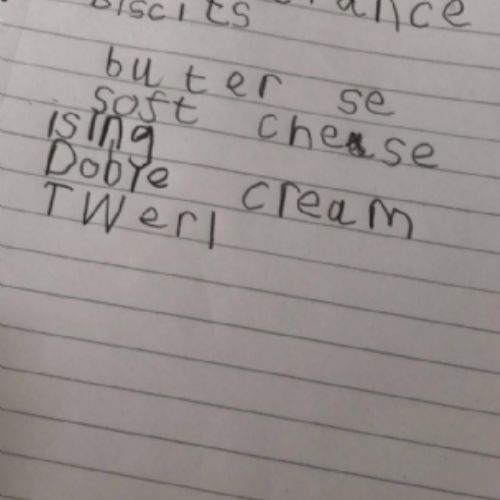 biscits
butter se
soft chese
ising
Dobye cream
TWerl